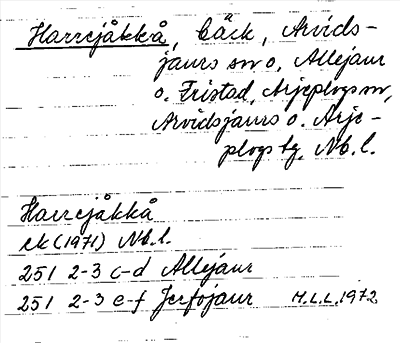 Harrejåkkå, bäck, Arvids-
jaurs sn o, Allejaur
o. Fristad, Arjeplogs sn,
Arvidsjaurs o. Arje-
plogs tg, Nb. l.
Harrejåkkå
ek (1971) Nb. l.
251 2-3 c-d Allejaur
251 2-3 e-f Jerfojaur M.L.L. 1972